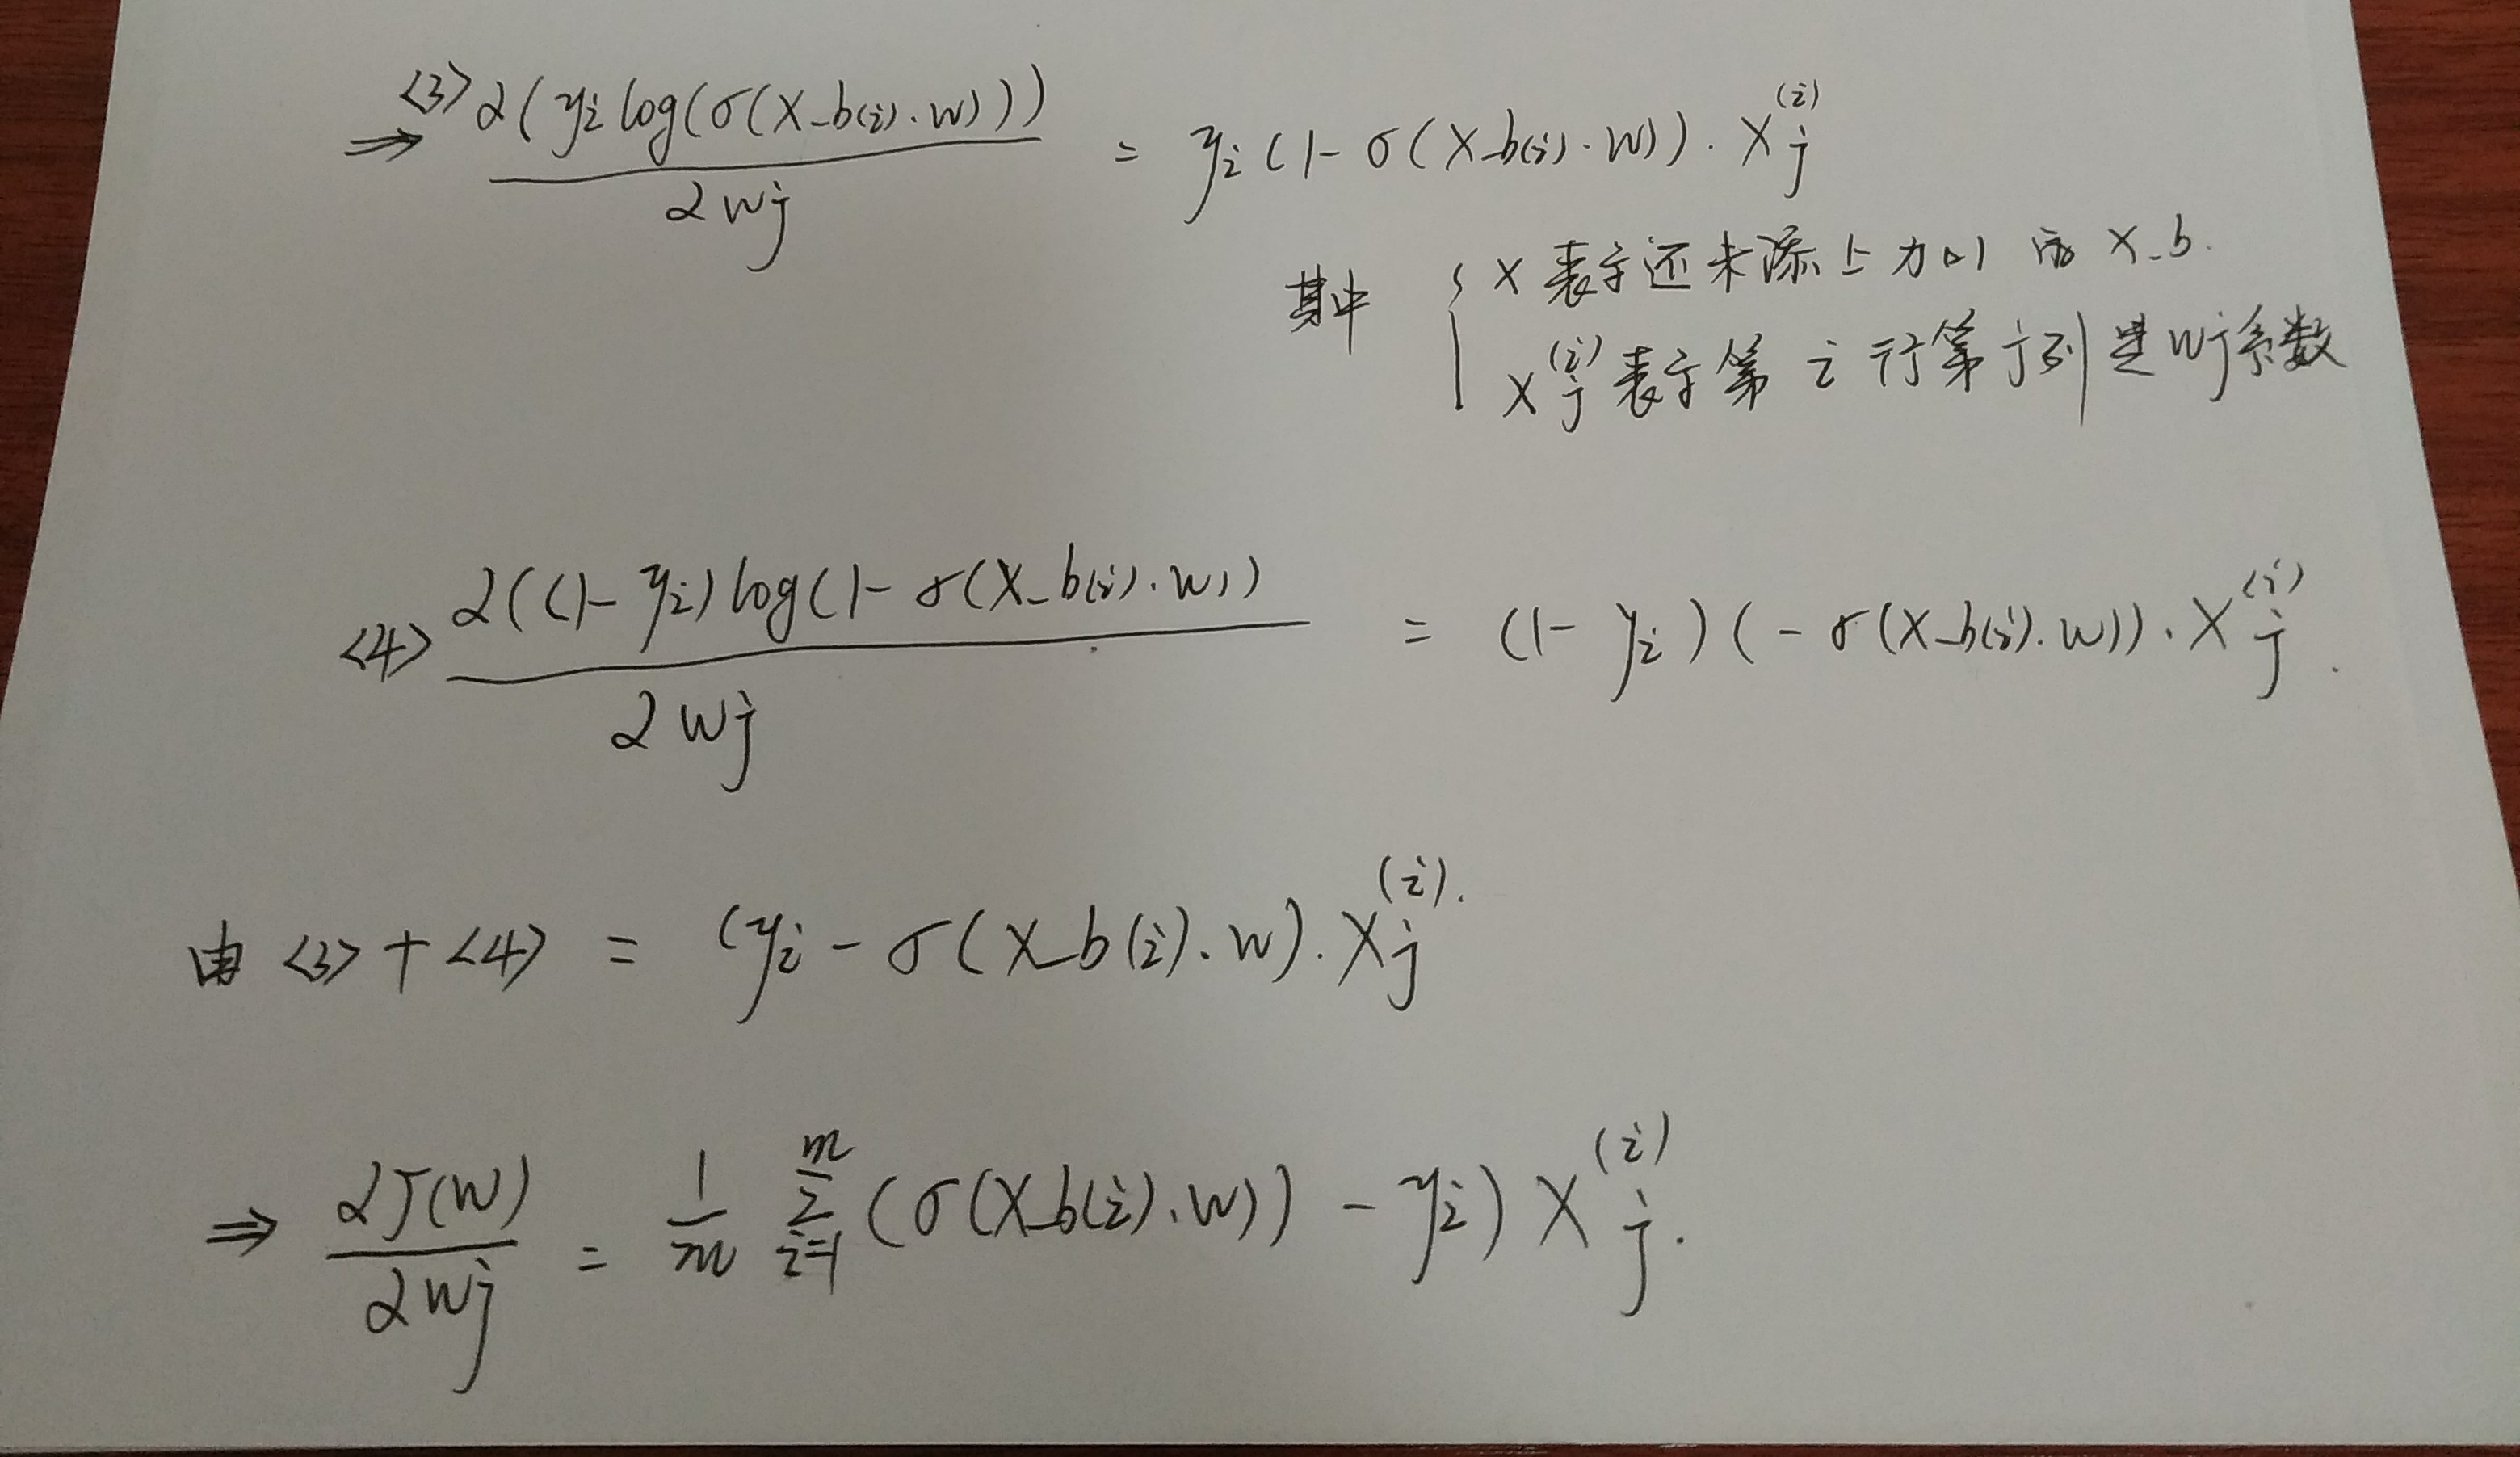 <3> ∂(yi log(σ(X_b(i)·W)))
⇒ ──── = yi(1-σ(X_b(i)·W))·Xj^(i)
∂Wj
其中 { X 表示还未添上加1的 X_b.
Xj^(i) 表示第 i 行第 j 列 是Wj系数
∂((1-yi)log(1-σ(X_b(i)·W))
<4> ──── = (1-yi)(-σ(X_b(i)·W))·Xj^(i).
∂Wj
由 <3>+<4> = (yi-σ(X_b(i)·W)·Xj^(i).
⇒ ∂J(W)/∂Wj = 1/m Σ_{i=1}^{m} (σ(X_b(i)·W))-yi) Xj^(i).